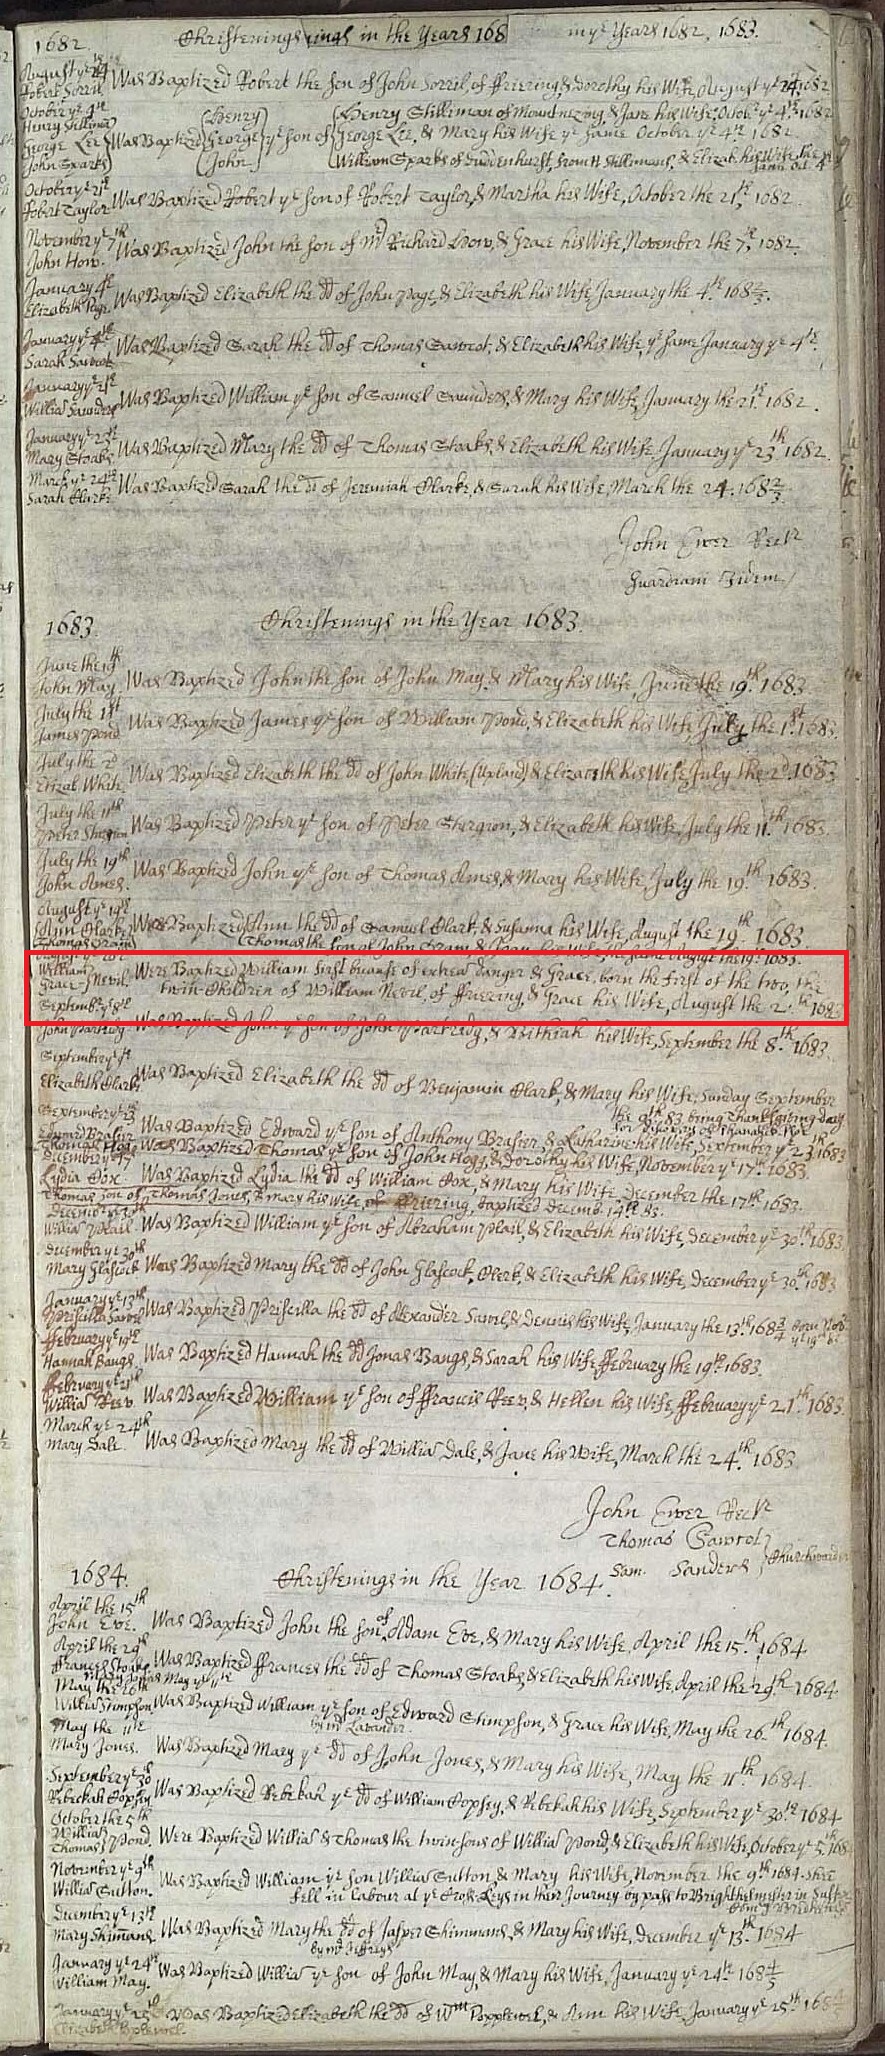 1682. Christenings ings in the Years 168 in ye Years 1682, 1683.
August ye 24
Robert Sorril. Was Baptized Robert the son of John Sorril, of ffriering, & Dorothy his Wife, August ye 24, 1682
October ye 4th
Henry Stilliman Henry Henry Stilliman of Mountnezing, & Jane his Wife, Octobr ye 4th 1682
George Lee Was Baptized George ye son of George Lee, & Mary his Wife ye same October ye 4th 1682.
John Sparks John William Sparks of from H Stillimans, & Elizab. his Wife the same Oct. 4th
October ye 21st
Robert Taylor Was Baptized Robert ye son of Robert Taylor, & Martha his Wife, October the 21st, 1682.
November ye 7th
John How. Was Baptized John the son of Mr Richard How, & Grace his Wife, November the 7th, 1682.
January 4th
Elizabeth Page Was Baptized Elizabeth the dd of John Page, & Elizabeth his Wife, January the 4th. 168 2/3.
January ye 4th
Sarah Sawcot Was Baptized Sarah the dd of Thomas Sawcot, & Elizabeth his Wife, ye same January ye 4th.
January ye 21st
William Saunders Was Baptized William ye son of Samuel Saunders, & Mary his Wife, January the 21st 1682.
January ye 23th
Mary Stoaks Was Baptized Mary the dd of Thomas Stoaks, & Elizabeth his Wife, January ye 23th 1682.
March ye 24th
Sarah Clark Was Baptized Sarah the dd of Jeremiah Clark, & Sarah his Wife, March the 24. 168 2/3
John Ewer Rectr
Guardiani Ibidem
1683. Christenings in the Year 1683.
June the 19th
John May. Was Baptized John the son of John May, & Mary his Wife, June the 19th. 1683
July the 1st
James Pond Was Baptized James ye son of William Pond, & Elizabeth his Wife July the 1st. 1683.
July the 2d
Elizab. White Was Baptized Elizabeth the dd of John White (Upland) & Elizabeth his Wife, July the 2d. 1683
July the 11th
Peter Sturgion Was Baptized Peter ye son of Peter Sturgion, & Elizabeth his Wife, July the 11.th 1683.
July the 19th
John Ames. Was Baptized John ye son of Thomas Ames, & Mary his Wife, July the 19.th 1683.
August ye 19th
Ann Clark Were Baptized Ann the dd of Samuel Clark, & Susanna his Wife, August the 19th 1683.
Thomas Thomas the son of John & his Wife, the same August the 19. 1683.
August ye
William
Grace Nevil. Were Baptized William first because of extrem danger & Grace, born the first of the two, the
twin-Children of William Nevil, of ffriering, & Grace his Wife, August the 2 th 1683
Septembr ye 8th
John Partridg Was Baptized John ye son of John Partridg, & Bithiah his Wife, September the 8.th 1683.
September ye 9th
Elizabeth Clark Was Baptized Elizabeth the dd of Benjamin Clark, & Mary his Wife, Sunday September
the 9th 83 being Thanksgiving day
for
September ye 23
Edward Brasier Was Baptized Edward ye son of Anthony Brasier, & Catharine his Wife, September ye 23th 1683
Thomas Hogg Was Baptized Thomas ye son of John Hogg, & Dorothy his Wife, November ye 17th 1683.
December ye 17
Lydia Cox. Was Baptized Lydia the dd of William Cox, & Mary his Wife, December the 17th 1683.
Thomas son of Thomas Jones, & Mary his Wife, of ffriering, baptized Decemb. 14th 83.
December ye 30th
William Plail Was Baptized William ye son of Abraham Plail, & Elizabeth his Wife, December ye 30th 1683
December ye 30th
Mary Glascock Was Baptized Mary the dd of John Glascock, Clerk, & Elizabeth his Wife, December ye 30th. 1683
January ye 13th
Priscilla Was Baptized Priscilla the dd of Alexander & Dennis his Wife, January the 13th 168 3/4 born Nov.
ye 19th 83
ffebruary ye 19th
Hannah Baugs. Was Baptized Hannah the dd Jonas Baugs, & Sarah his Wife ffebruary the 19th. 1683.
ffebruary ye 21th
William Reev Was Baptized William ye son of ffrancis Reev, & Hellen his Wife, ffebruary ye 21th 1683.
March ye 24th
Mary Dale. Was Baptized Mary the dd of Willia Dale, & Jane his Wife, March the 24.th 1683
John Ewer Rectr
Thomas Sawcot
Sam. Sanders Churchwarden
1684. Christenings in the Year 1684.
April the 15th
John Eve. Was Baptized John the son of Adam Eve, & Mary his Wife, April the 15.th 1684
April the 29th
ffrances Stoaks Was Baptized ffrances the dd of Thomas Stoaks, & Elizabeth his Wife, April the 29th 1684.
Mary Jones May ye 11th
May the 26th
Willia Stimpson Was Baptized William ye son of Edward Stimpson, & Grace his Wife, May the 26.th 1684.
by Mr Lavander.
May the 11th
Mary Jones. Was Baptized Mary ye dd of John Jones, & Mary his Wife, May the 11th 1684.
September ye 30
Rebeckah Copsey Was Baptized Rebekah ye dd of William Copsey, & Rebekah his Wife, September ye 30th 1684
October the 5th
William
Thomas Pond. Were Baptized Willia & Thomas the twin-sons of Willia Pond, & Elizabeth his Wife, October ye 5.th 1684
November ye 9th
Willia Sutton. Was Baptized William ye son Willia Sutton, & Mary his Wife, November the 9th 1684. shee
fell in labour at ye Cross-Keys in their Journey by pass to Brighthelmster in Sussex
December ye 13th
Mary Skimmans. Was Baptized Mary the dd of Jasper Skimmans, & Mary his Wife, December ye 13.th 1684
by Mr Jeffreys
January ye 24th
William May. Was Baptized Willia ye son of John May, & Mary his Wife, January ye 24th 168 4/5
January ye 25th Was Baptized Elizabeth the dd of Wm Popplewel, & Ann his Wife, January ye 25th 168
Elizabeth Poplewel.